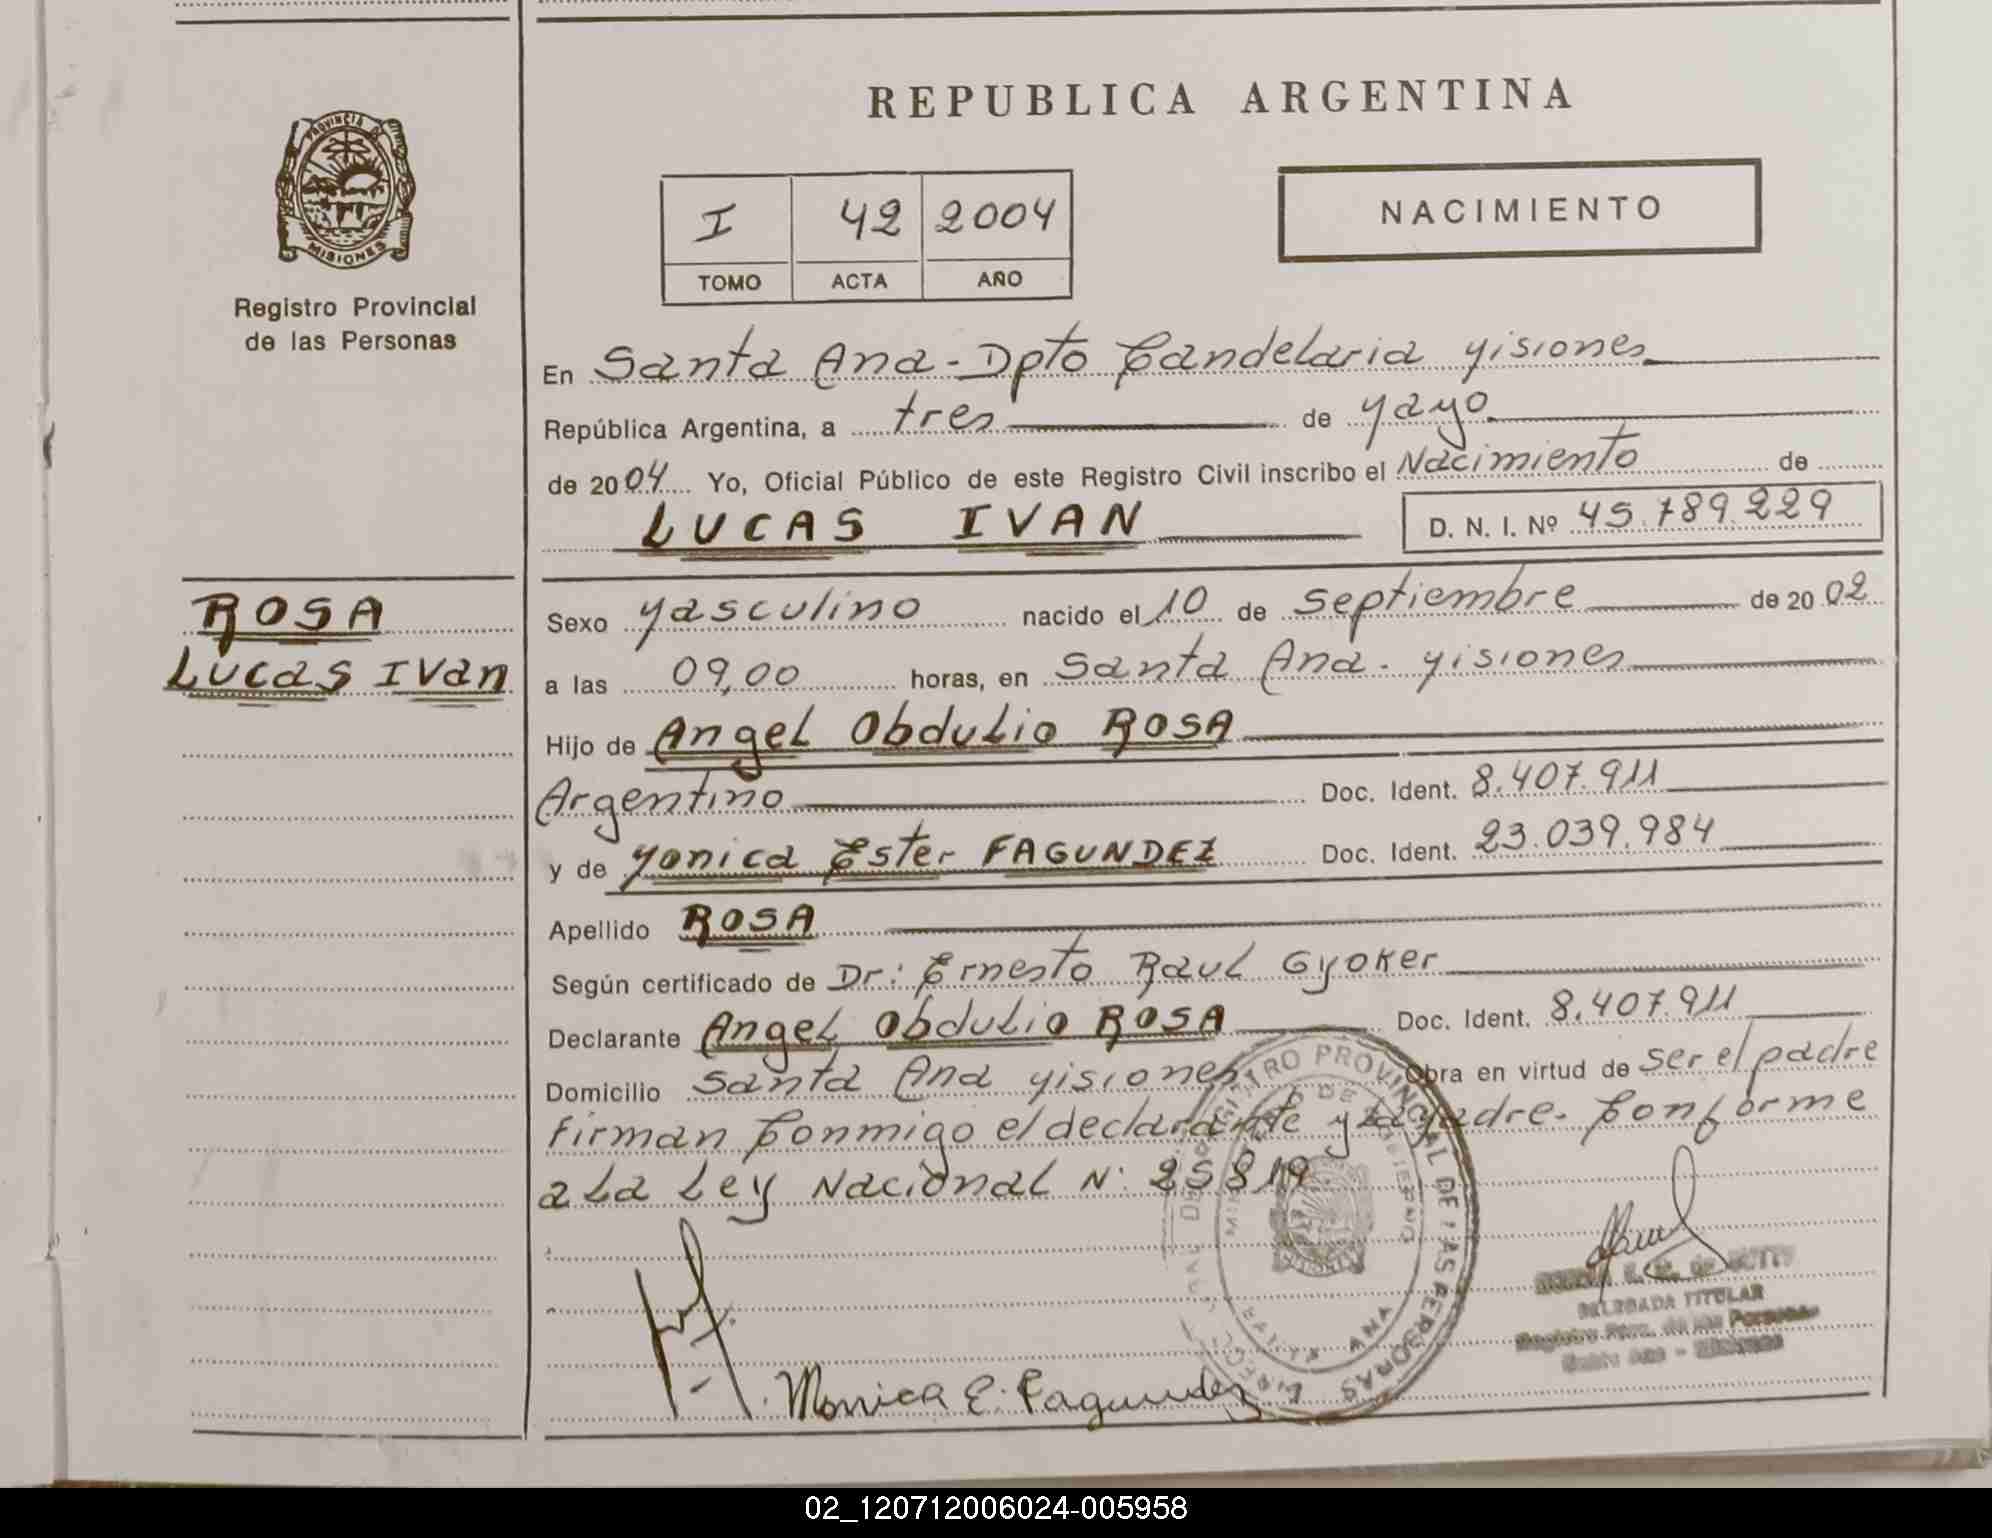 REPUBLICA ARGENTINA
PROVINCIA DE
MISIONES
Registro Provincial
de las Personas
I 42 2004
TOMO ACTA AÑO
NACIMIENTO
En Santa Ana - Dpto Candelaria Misiones
República Argentina, a tres de Mayo
de 2004 Yo, Oficial Público de este Registro Civil inscribo el Nacimiento de
LUCAS IVAN D. N. I. Nº 45.789.229
ROSA
Lucas Ivan
Sexo Masculino nacido el 10 de Septiembre de 2002
a las 09,00 horas, en Santa Ana - Misiones
Hijo de Angel Obdulio ROSA
Argentino Doc. Ident. 8.407.911
y de Monica Ester FAGUNDEZ Doc. Ident. 23.039.984
Apellido ROSA
Según certificado de Dr: Ernesto Raul Gyoker
Declarante Angel Obdulio ROSA Doc. Ident. 8.407.911
Domicilio Santa Ana Misiones Obra en virtud de ser el padre
Firman Conmigo el declarante y la Madre - Conforme
a la Ley Nacional N: 25819
REGISTRO PROVINCIAL DE LAS PERSONAS
DELEGADA TITULAR
Registro Prov. de las Personas
Santa Ana - Misiones
Monica E. Fagundez
02_120712006024-005958